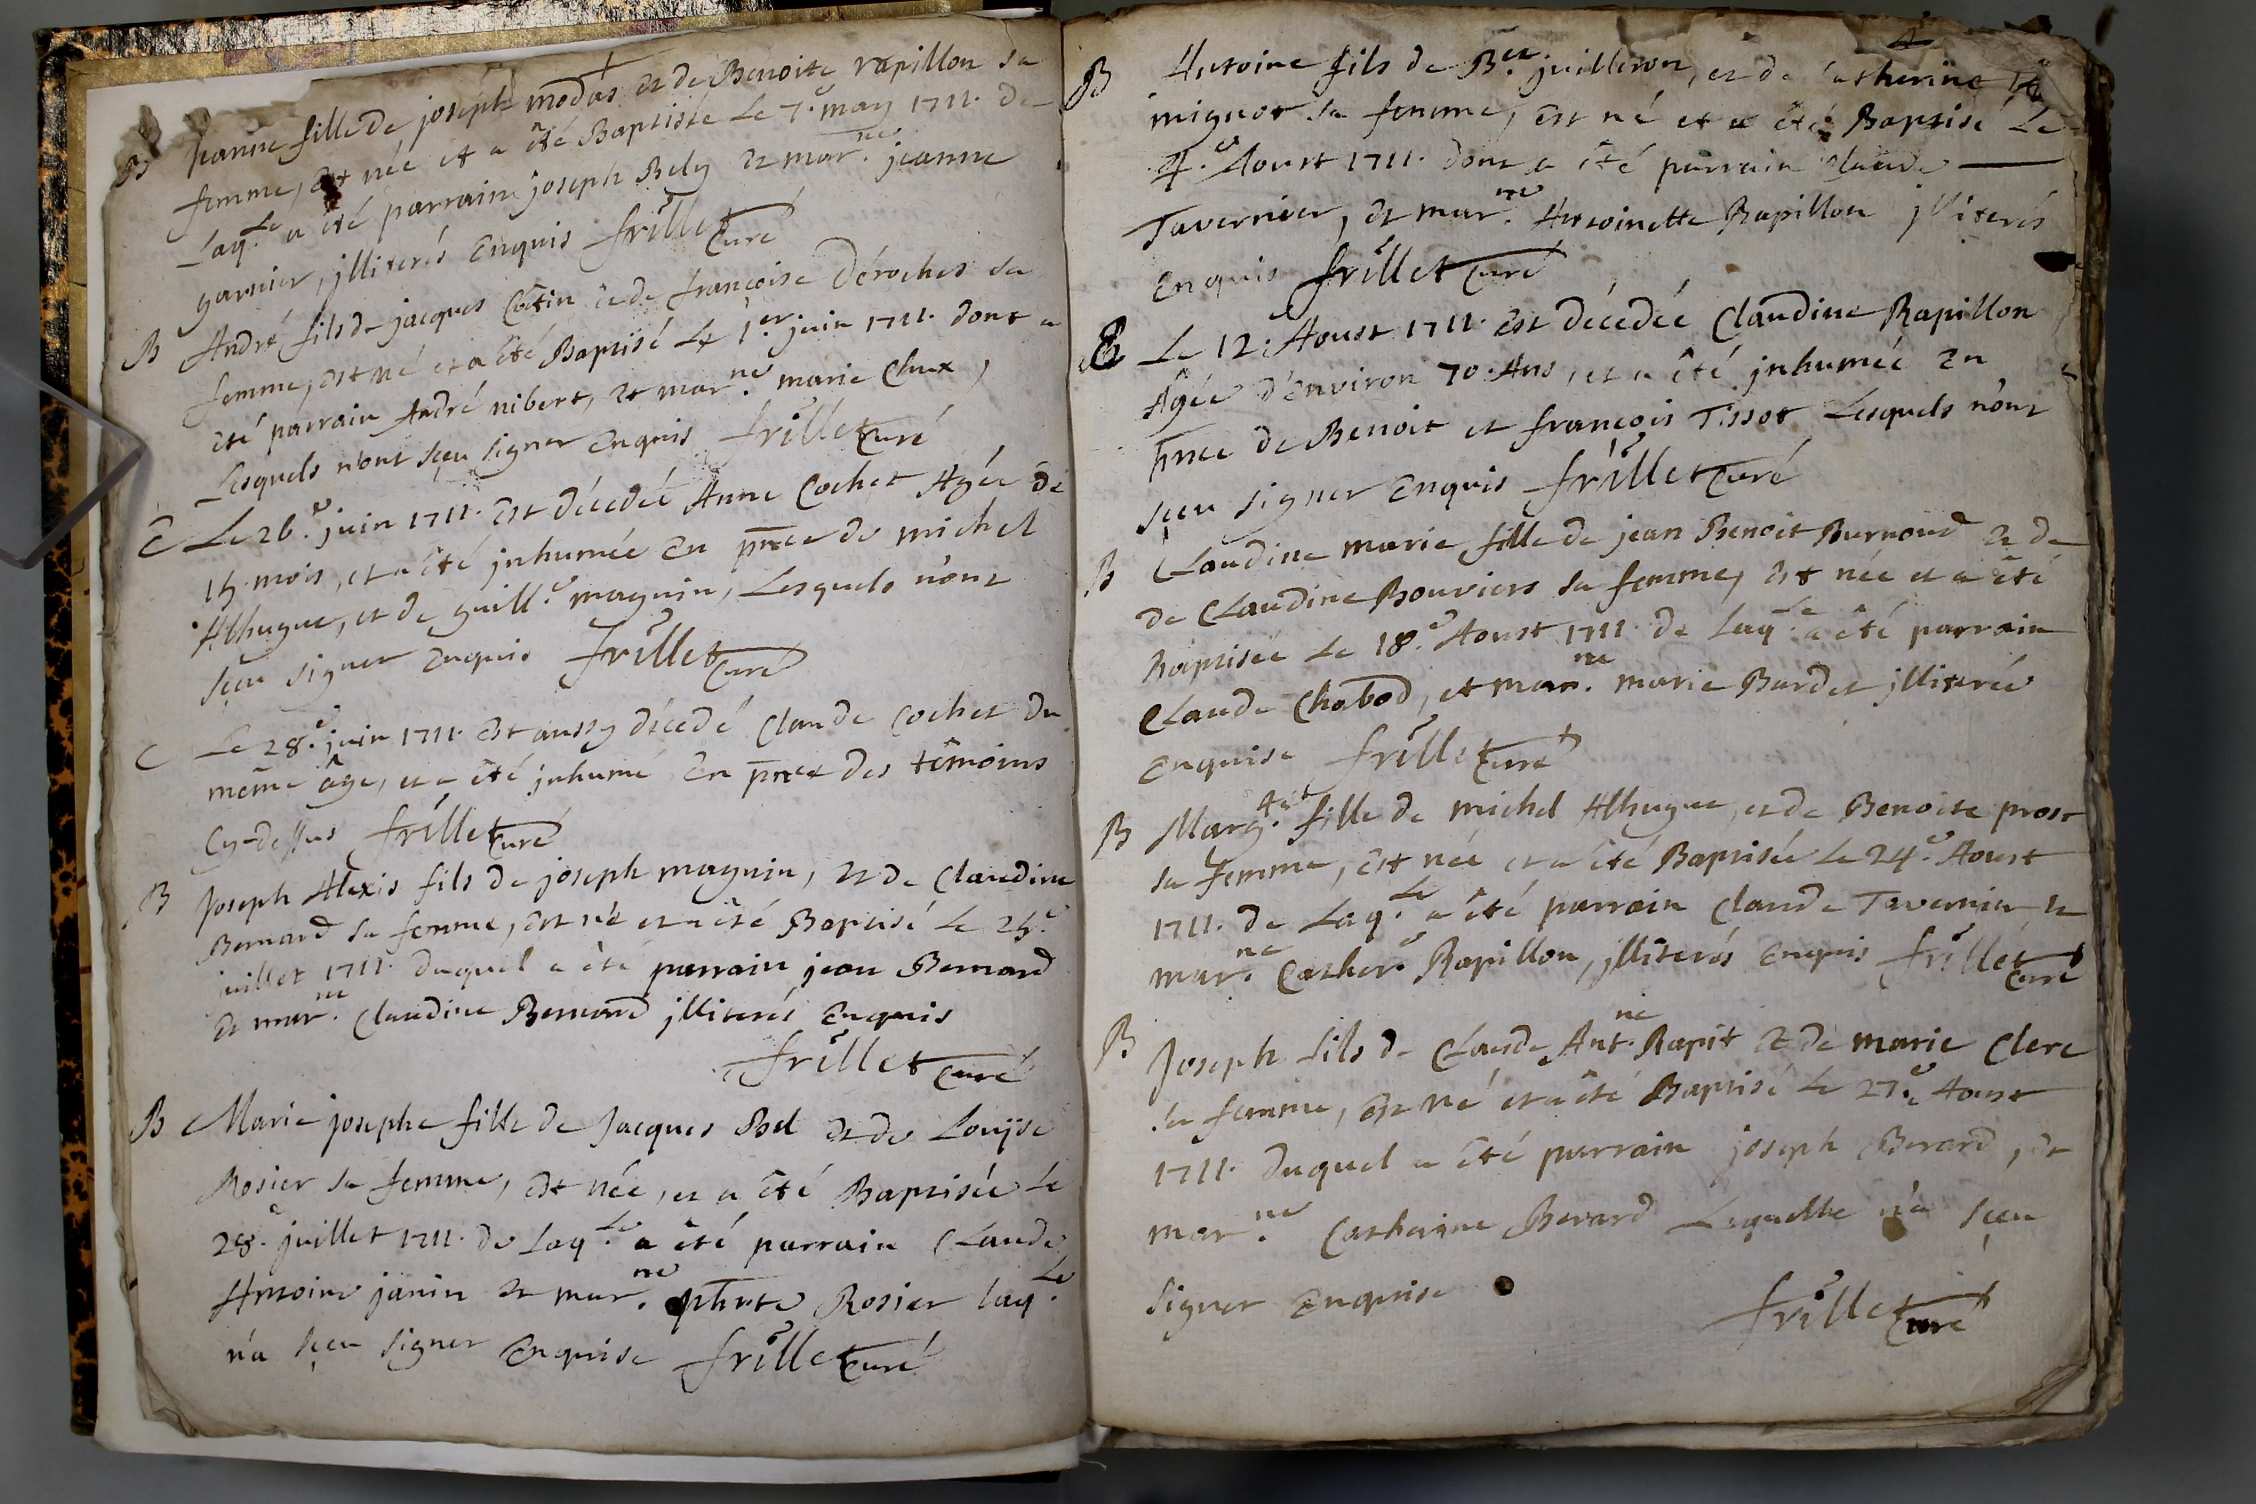 B Jeanne fille de joseph modas et de Benoite rapillon sa
femme, est née et a été Baptisée Le 7.e may 1711. de
Laq.le a été parrain joseph Bely et mar.ne jeanne
garnier, jlliterés Enquis frillet Curé
B André fils de jacques Cotin et de françoise Déroches sa
femme, est né et a été Baptisé Le 1.er juin 1711. dont a
été parrain André nibert, et mar.ne marie Chux,
Lesquels n'ont sçeu signer Enquis frillet Curé
E Le 26.e juin 1711. est décedée Anne Cochet Agée de
15. mois, et a été jnhumée En pnce de michel
Abhugue, et de guill.e magnin, Lesquels n'ont
sçeu signer Enquis frillet Curé
E Le 28.e juin 1711. est aussy décedé Claude Cochet du
même âge, et a été jnhumé En pnce des têmoins
Cy-dessus frillet Curé
B Joseph Alexis fils de joseph magnin, et de Claudine
Bernard sa femme, est né et a été Baptisé Le 25.e
juillet 1711. duquel a été parrain jean Bernard
et mar.ne Claudine Bernard jlliterés Enquis
frillet Curé
B Marie josephe fille de Jacques Bel et de Louïse
Rosier sa femme, est née, et a été Baptisée Le
28.e juillet 1711. de Laq.le a été parrain Claude
Antoine janin et mar.ne phrte Rosier laq.le
n'a sçeu signer Enquise frillet Curé
B Antoine fils de B.et juilleron, et de Catherine
mignot sa femme, est né et a été Baptisé Le
4.e Aoust 1711. dont a été parrain Claude
Tavernier, et mar.ne Antoinette Rapillon jlliterés
Enquis frillet Curé
E Le 12. Aoust 1711. est décedée Claudine Rapillon
Agée d'Environ 70. Ans, et a été jnhumée En
pnce de Benoit et françois Tissot Lesquels n'ont
sçeu signer Enquis frillet Curé
B Claudine marie fille de jean Benoit Burnoud et de
de Claudine Bouviers sa femme, est née et a été
Baptisée Le 18.e Aoust 1711. de Laq.le a été parrain
Claude Chabod, et mar.ne marie Burdet jlliterée
Enquise frillet Curé
B Marg.te fille de michel Abhugue, et de Benoite prost
sa femme, est née et a été Baptisée Le 24.e Aoust
1711. de Laq.le a été parrain Claude Tavernier et
mar.ne Cather.e Rapillon, jlliterés Enquis frillet Curé
B Joseph fils de Claude Ant.ne Rapit et de marie Clerc
sa femme, est né et a été Baptisé Le 27.e Aoust
1711. duquel a été parrain joseph Berard, et
mar.ne Catherine Berard Laquelle n'a sçeu
signer Enquise frillet Curé